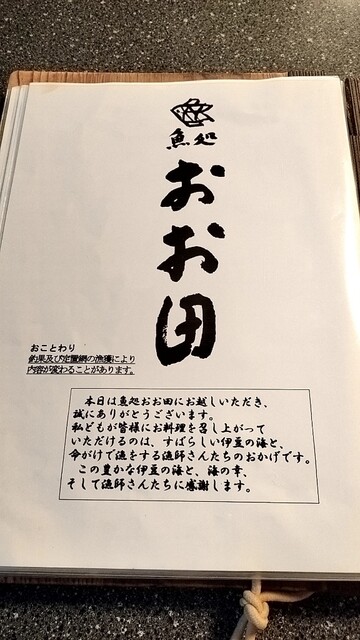 魚処
おお田
おことわり
釣果及び定置網の漁獲により
内容が変わることがあります。
本日は魚処おお田にお越しいただき、
誠にありがとうございます。
私どもが皆様にお料理を召し上がって
いただけるのは、すばらしい伊豆の海と、
命がけで漁をする漁師さんたちのおかげです。
この豊かな伊豆の海と、海の幸、
そして漁師さんたちに感謝します。